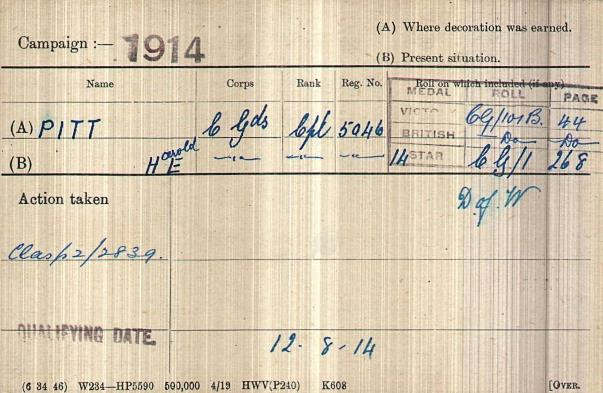 (A) Where decoration was earned.
Campaign :— 1914
(B) Present situation.
Name Corps Rank Reg. No. Roll on which included (if any)
MEDAL ROLL PAGE
(A) PITT C Gds Cpl 5046 VICTO CG/101B. 44
BRITISH Do Do
(B) Harold E —"— —"— —"— 14 STAR CG/1 268
Action taken D of W
Clasp 2/2839.
QUALIFYING DATE. 12 · 8 · 14
(6 34 46) W234—HP5590 500,000 4/19 HWV(P240) K608 [OVER.